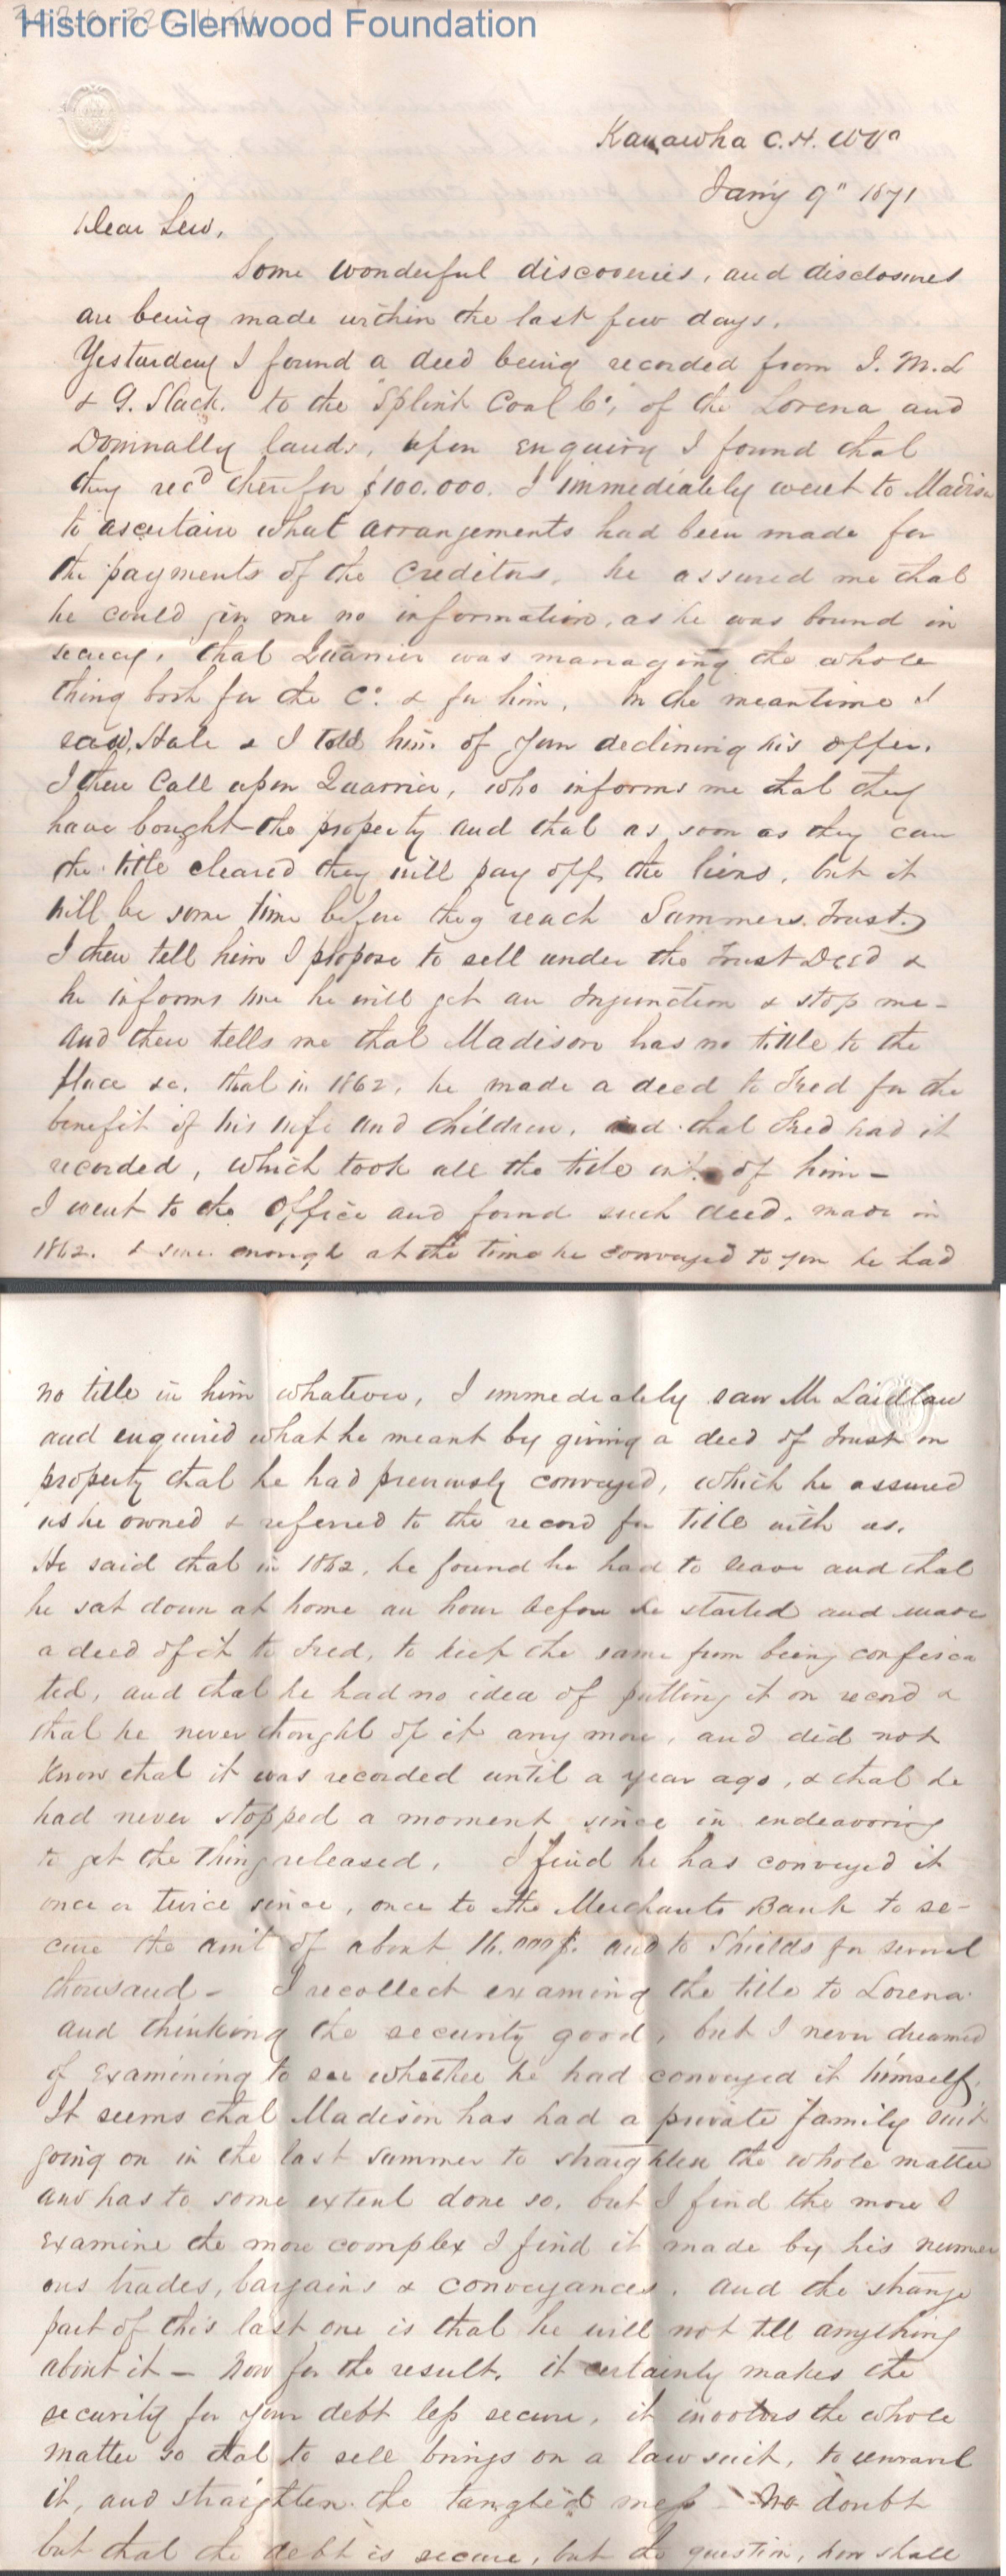 Historic Glenwood Foundation
Kanawha C.H. WVa
Jan'y 9" 1871
Dear Lew,
Some wonderful discoveries, and disclosures
are being made within the last few days.
Yesterday I found a deed being recorded from J. M. L
& G. Slack. to the "Splint Coal Co", of the Lorena and
Donnally lands, upon enquiry I found that
they recd therefor $100.000. I immediately went to Madison
to ascertain what arrangements had been made for
the payments of the Creditors, he assured me that
he could giv me no information, as he was bound in
secrecy, that Quarrier was managing the whole
thing both for the Co. & for him, In the meantime I
saw, Hale & I told him of your declining his offer.
I then Call upon Quarrier, who informs me that they
have bought the property and that as soon as they can
the title cleared they will pay off the liens, but it
will be some time before they reach Summers. Trust.)
I then tell him I propose to sell under the Trust Deed &
he informs me he will get an Injunction & stop me -
And then tells me that Madison has no tittle to the
place &c. that in 1862, he made a deed to Fred for the
benefit of his wife and children, and that Fred had it
recorded, which took all the title out of him -
I went to the Office and found such deed, made in
1862. & sure enough at the time he conveyed to you he had
no title in him whatever, I immediately saw Mr Laidlaw
and enquired what he meant by giving a deed of Trust on
property that he had previously conveyed, which he assured
us he owned & referred to the record for title with us.
He said that in 1862, he found he had to leave and that
he sat down at home an hour before he started and made
a deed of it to Fred, to keep the same from being confisca
ted, and that he had no idea of putting it on record &
that he never thought of it any more, and did not
know that it was recorded until a year ago, & that he
had never stopped a moment since in endeavoring
to get the thing released. I find he has conveyed it
once or twice since, once to the Merchants Bank to se-
cure the am't of about 16.000$. and to Shields for several
thousand - I recollect examing the title to Lorena
and thinking the security good, but I never dreamed
of examining to see whether he had conveyed it himself.
It seems that Madison has had a private family suit
going on in the last summer to straighten the whole matter
and has to some extent done so, but I find the more I
examine the more complex I find it made by his numer
ous trades, bargains & conveyances. and the strange
part of this last one is that he will not tell anything
about it - Now for the result. it certainly makes the
security for your debt less secure, it the whole
matter so that to sell brings on a law suit, to unravel
it, and straighten the tangled mess - No doubt
but that the debt is secure, but the question, how shall